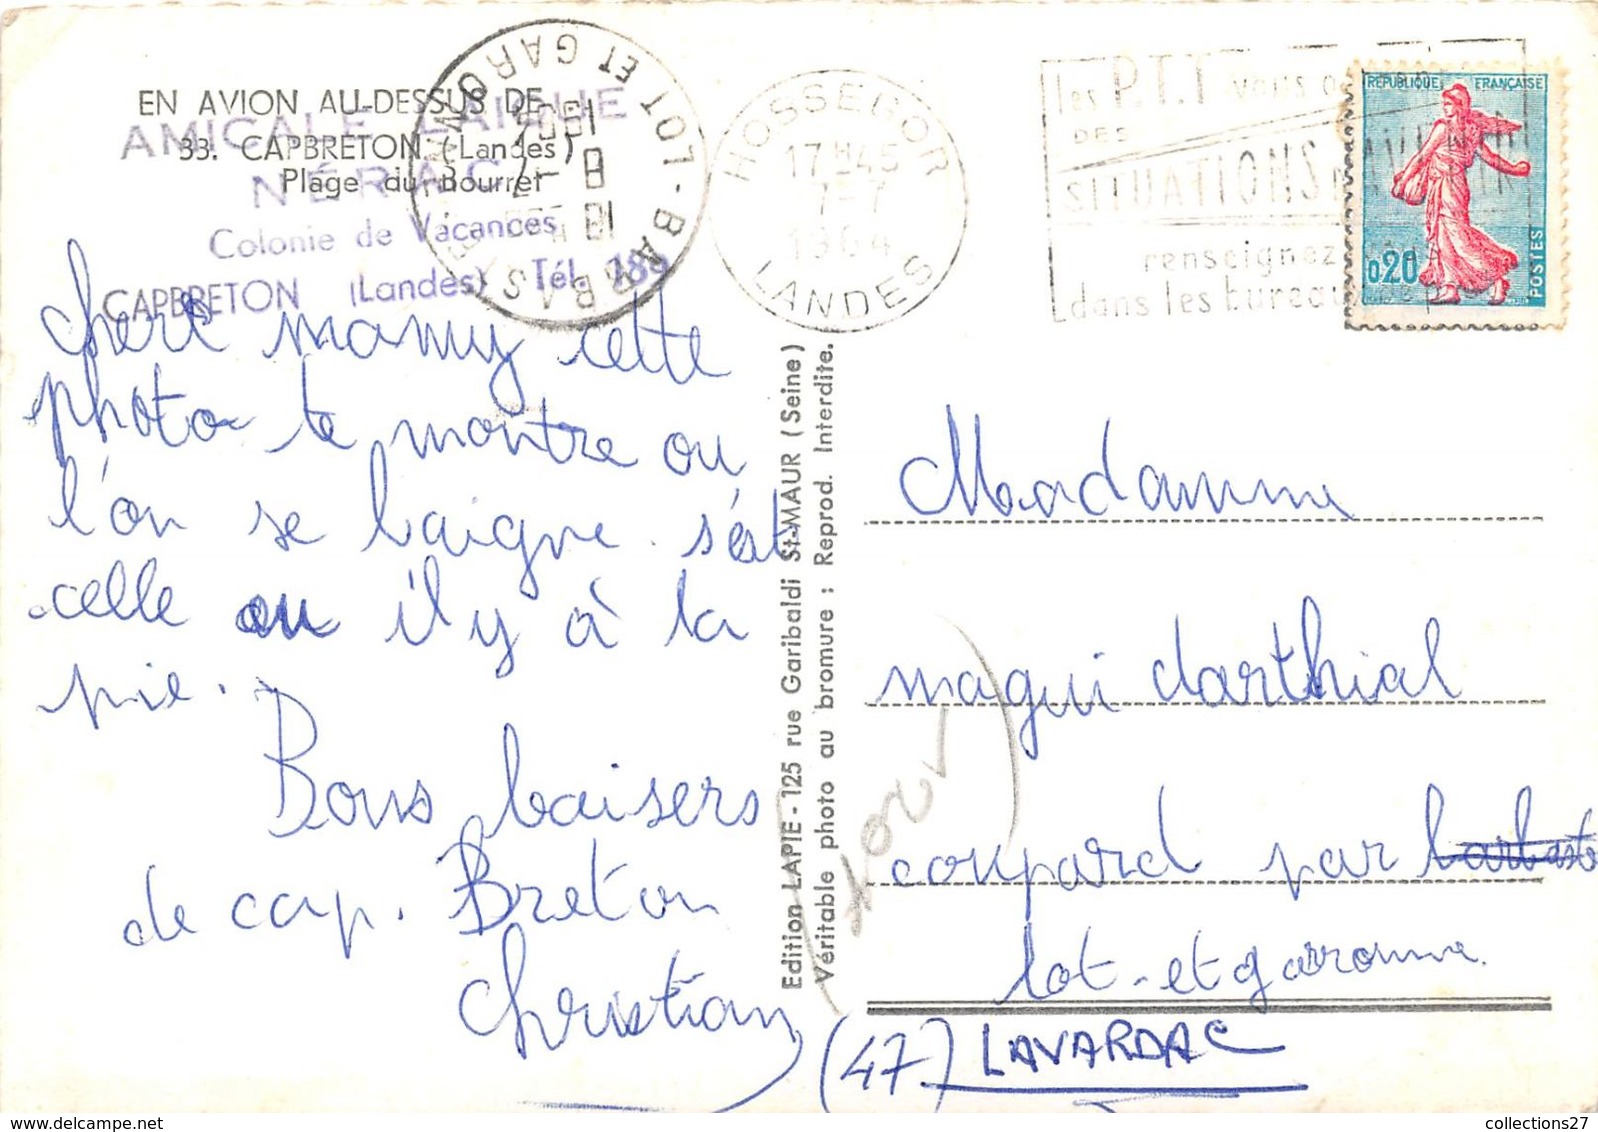 EN AVION AU-DESSUS DE
33. CAPBRETON (Landes)
Plage du Bourret
AMICALE LAIQUE
NÉRAC
Colonie de Vacances
CAPBRETON (Landes) Tél. 189
LOT ET GARONNE
BARBASTE
18 H
8 - 7
1964
HOSSEGOR
17 H 45
7 - 7
1964
LANDES
les P.T.T vous o
DES
SITUATIONS D'AVENIR
renseignez
dans les bureau
RÉPUBLIQUE FRANÇAISE
0,20
POSTES
chere mamy cette
photo te montre ou
l'on se baigne. s'est
celle ou il y à la
pie.
Bons baisers
de cap. Breton
Christian
Edition LAPIE - 125 rue Garibaldi St-MAUR (Seine)
Véritable photo au bromure : Reprod. Interdite.
Madamme
magui darthial
coupard par barbaste
lot-et garonne.
(47) LAVARDAC
collections27